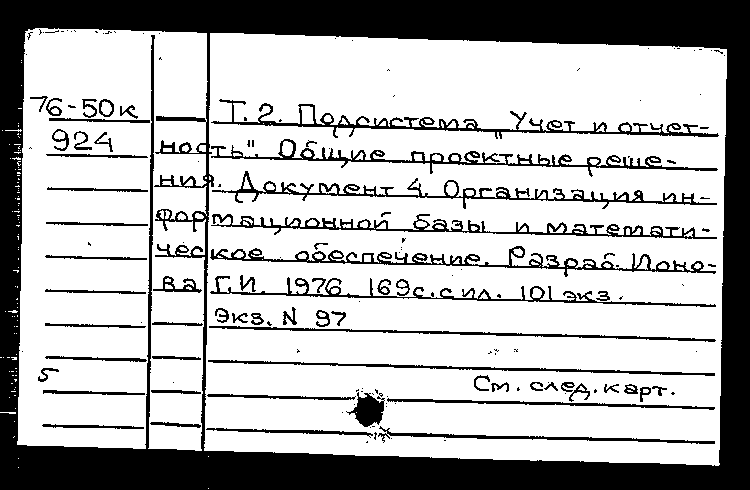 76-50к
924
Т. 2. Подсистема „Учет и отчет-
ность". Общие проектные реше-
ния. Документ 4. Организация ин-
формационной базы и математи-
ческое обеспечение. Разраб. Ионо-
ва Г.И. 1976. 169с. с ил. 101 экз.
Экз. N 97
5
См. след. карт.